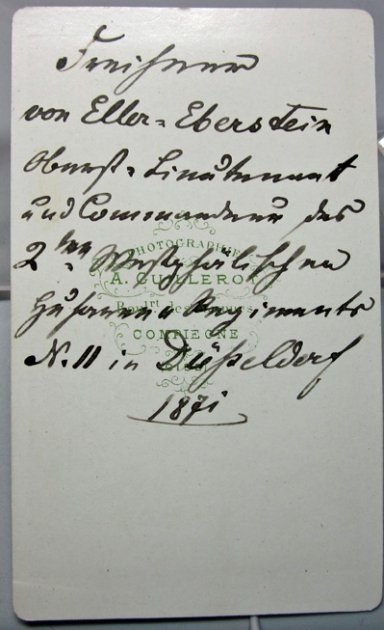 Freiherr
von Eller-Eberstein
Oberst-Lieutenant
und Commandeur des
2ten Westphälischen
Husaren-Regiments
N. 11 in Düßeldorf
1871
PHOTOGRAPHIE
COMPIEGNE